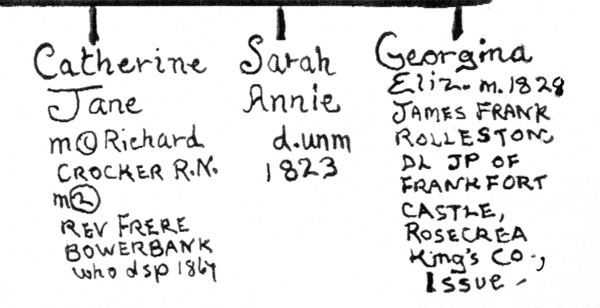 Catherine
Jane
m ① Richard
CROCKER R.N.
m ②
REV FRERE
BOWERBANK
who dsp 1867
Sarah
Annie
d. unm
1823
Georgina
Eliz. m. 1828
JAMES FRANK
ROLLESTON,
DL JP OF
FRANKFORT
CASTLE,
ROSECREA
King's Co.,
Issue -